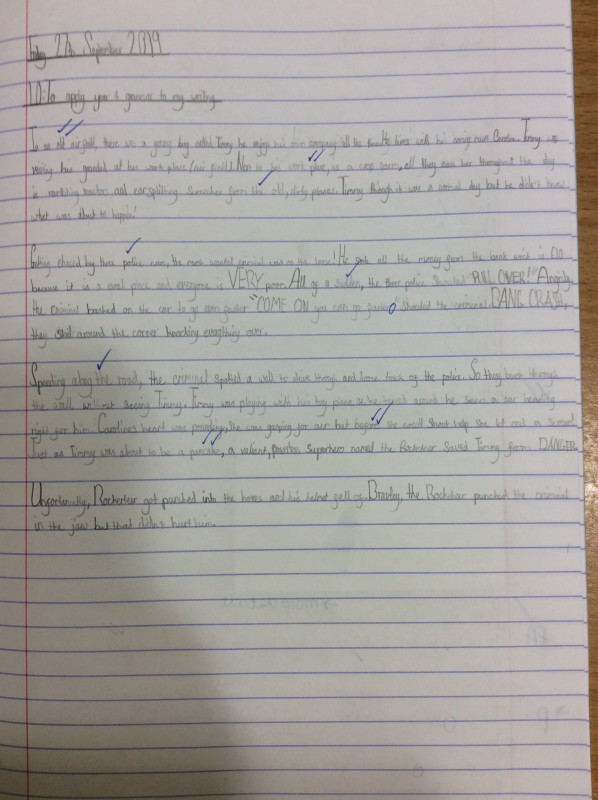 Friday 27th September 2019
LO: To apply year 4 grammar to my writing.
In an old airfield, there was a young boy called Timmy he enjoys his own company all the time. He lives with his caring mum Caroline. Timmy was
visiting his at her work place (air field). Near to her work place, was a camp room, all they can hear throughout the day
is tractor and earsplitting from the old, dirty planes. Timmy though it was a normal day but he didn't know
what was about to happen!
Getting chased by three police cars, the most wanted criminal was on the loose! He stole all the money from the bank wich is 00
because it is a small place and everyone is VERY poor. All of a sudden, the three police shouted PULL OVER!" Angrily,
the criminal bashed on the car to go even faster "COME ON you can go faster" Shouted the criminal. BANG CRASH,
they skid around the corner knocking everything over.
Speeding along the road, the criminal spotted a wall to drive through and loose track of the police. So they burst through
the wall without seeing Timmy. Timmy was playing with his toy plane as he turned around he seen a car heading
right for him. Caroline's heart was pounding, she was gasping for air but before she could shout help she let out a scream!
Just as Timmy was about to be a pancake, a valient, superhero named the Rocketeer saved Timmy from DANGER.
Unfortunatly, Rocketeer got punched into the boxes and his helmet fell off. Bravley, the Rocketeer punched the criminal
in the jaw but that didn't hurt him.